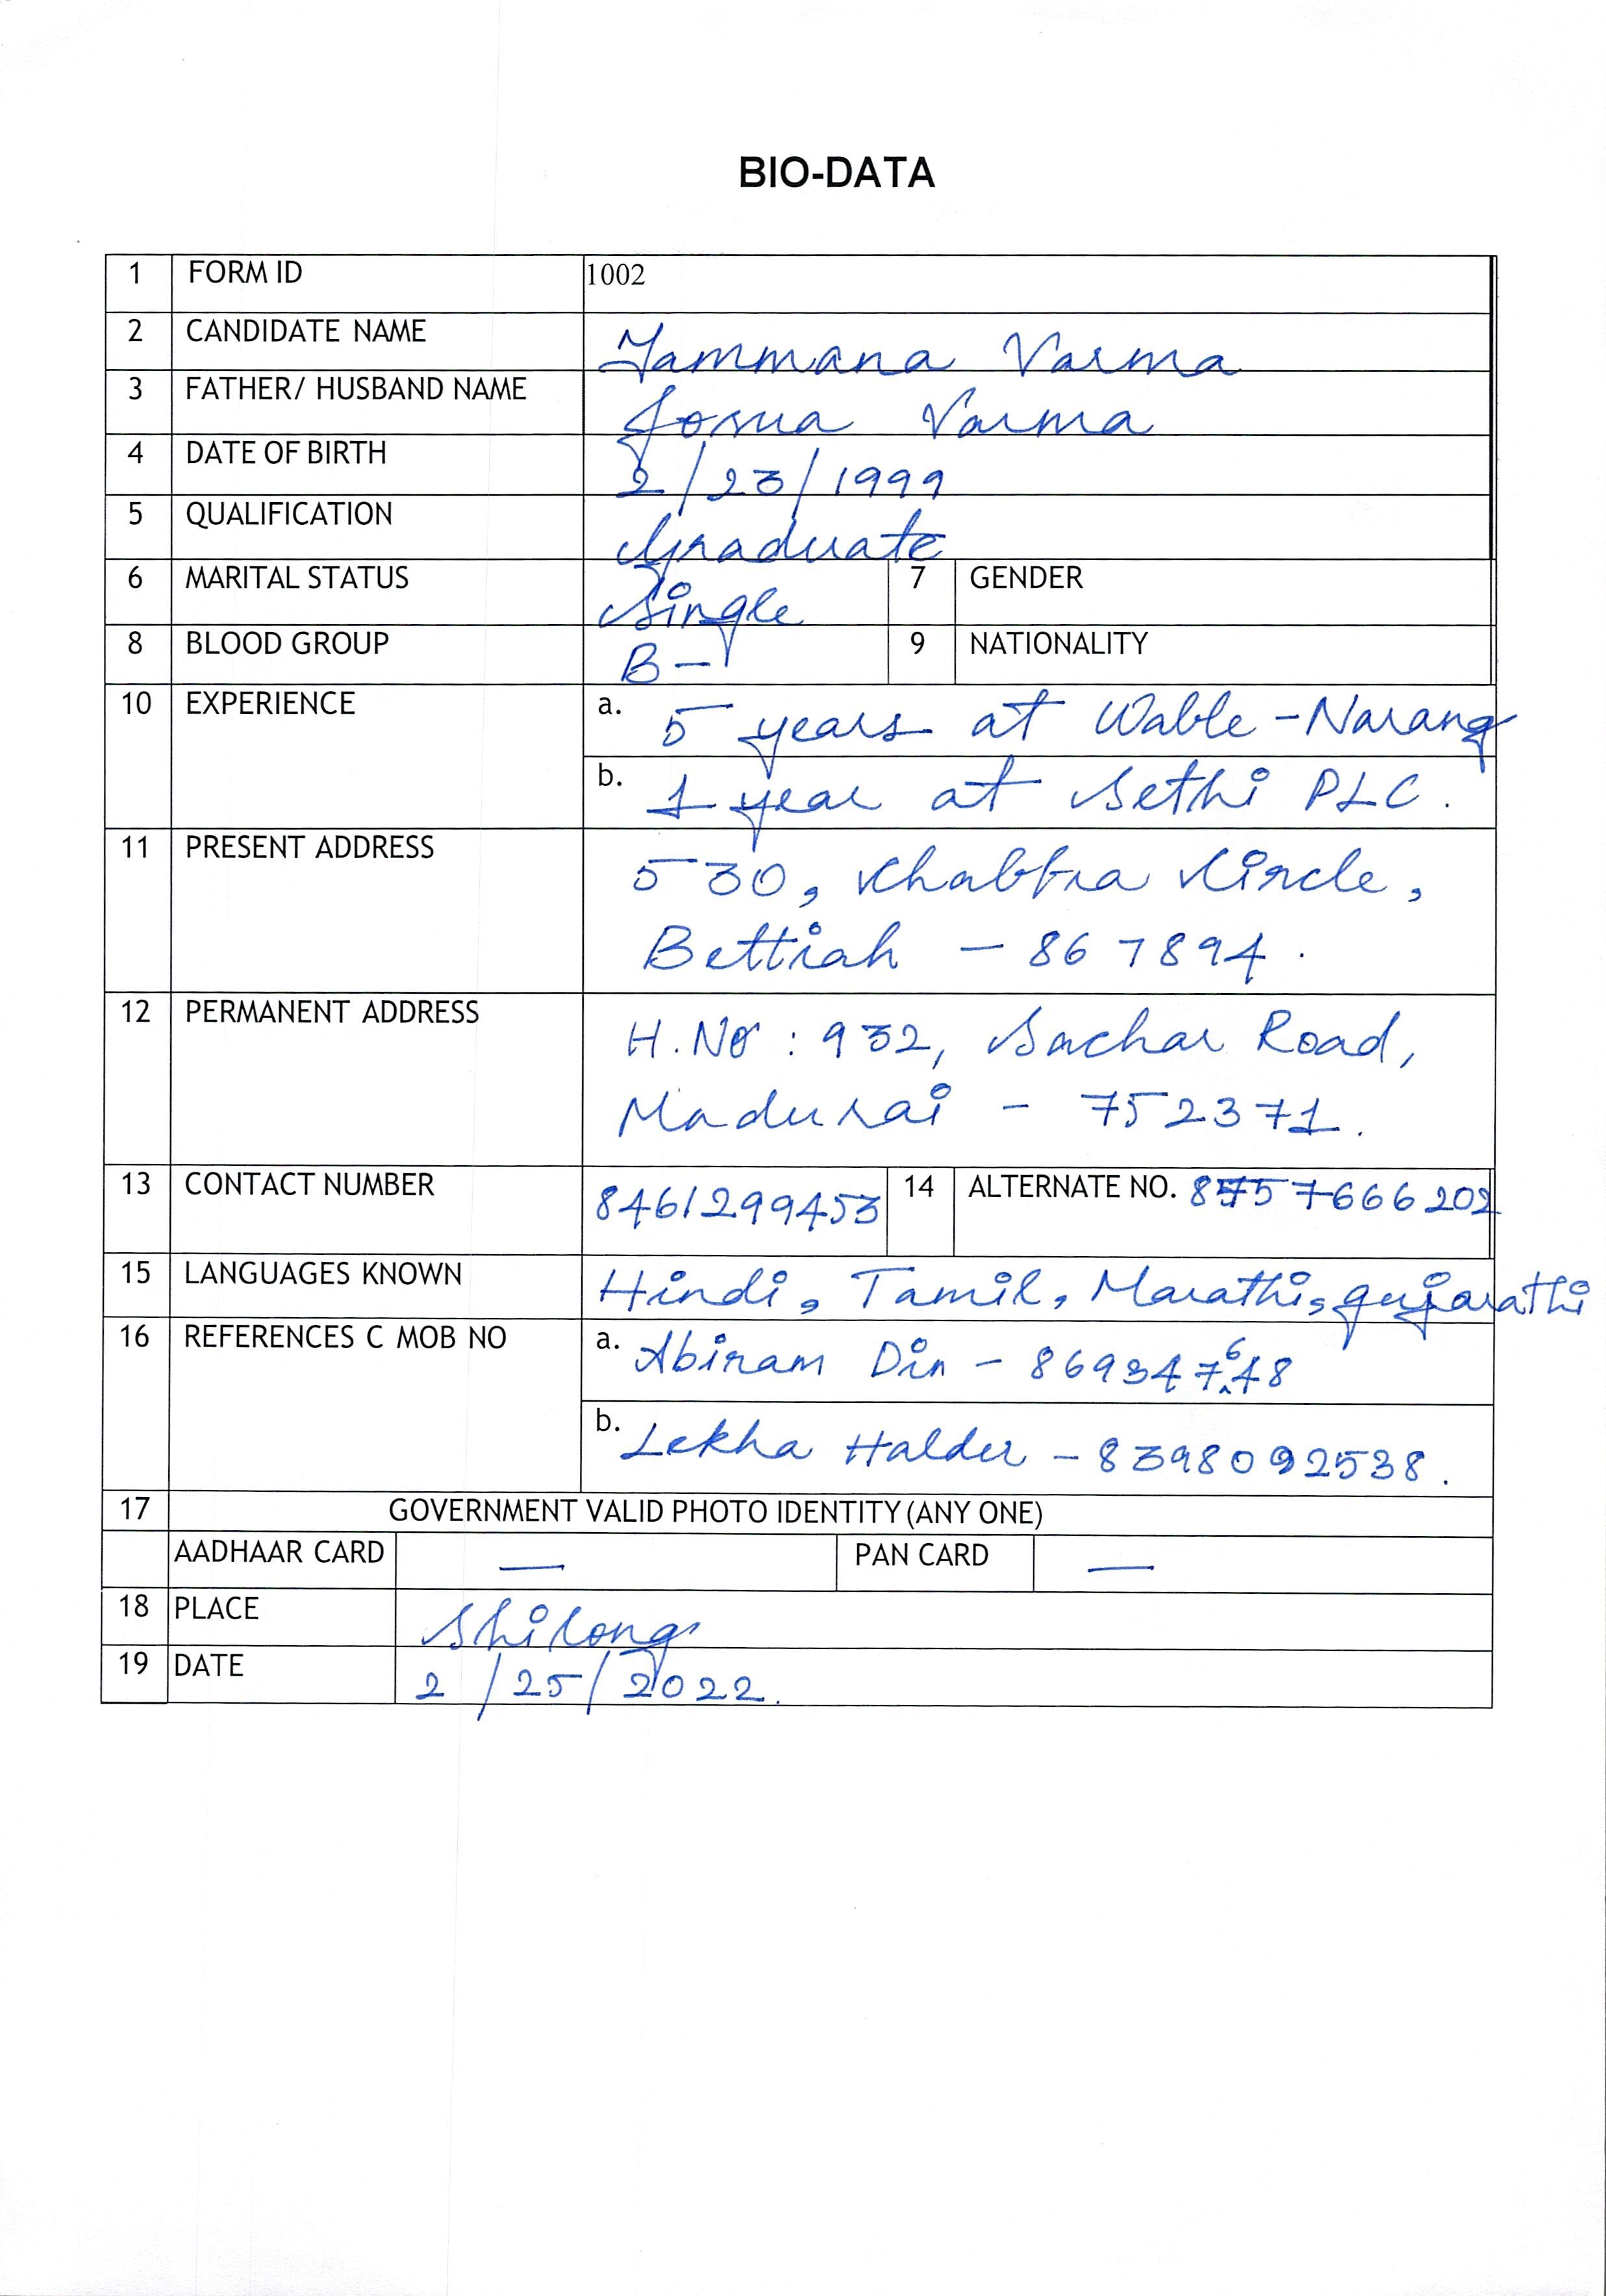 BIO-DATA
1 FORM ID 1002
2 CANDIDATE NAME Yammana Varma
3 FATHER/ HUSBAND NAME Josua Varma
4 DATE OF BIRTH 2/23/1999
5 QUALIFICATION Graduate
6 MARITAL STATUS Single 7 GENDER
8 BLOOD GROUP B- 9 NATIONALITY
10 EXPERIENCE a. 5 years at Wable-Narang
b. 1 year at Sethi PLC.
11 PRESENT ADDRESS 530, Khabbra Circle,
Bettiah - 867894.
12 PERMANENT ADDRESS H.No: 932, Sachar Road,
Madurai - 752371.
13 CONTACT NUMBER 8461299453 14 ALTERNATE NO. 8757666202
15 LANGUAGES KNOWN Hindi, Tamil, Marathi, gujarathi
16 REFERENCES C MOB NO a. Abiram Din - 869347648
b. Lekha Halder - 8398092538.
17 GOVERNMENT VALID PHOTO IDENTITY (ANY ONE)
AADHAAR CARD — PAN CARD —
18 PLACE Shilong
19 DATE 2/25/2022.